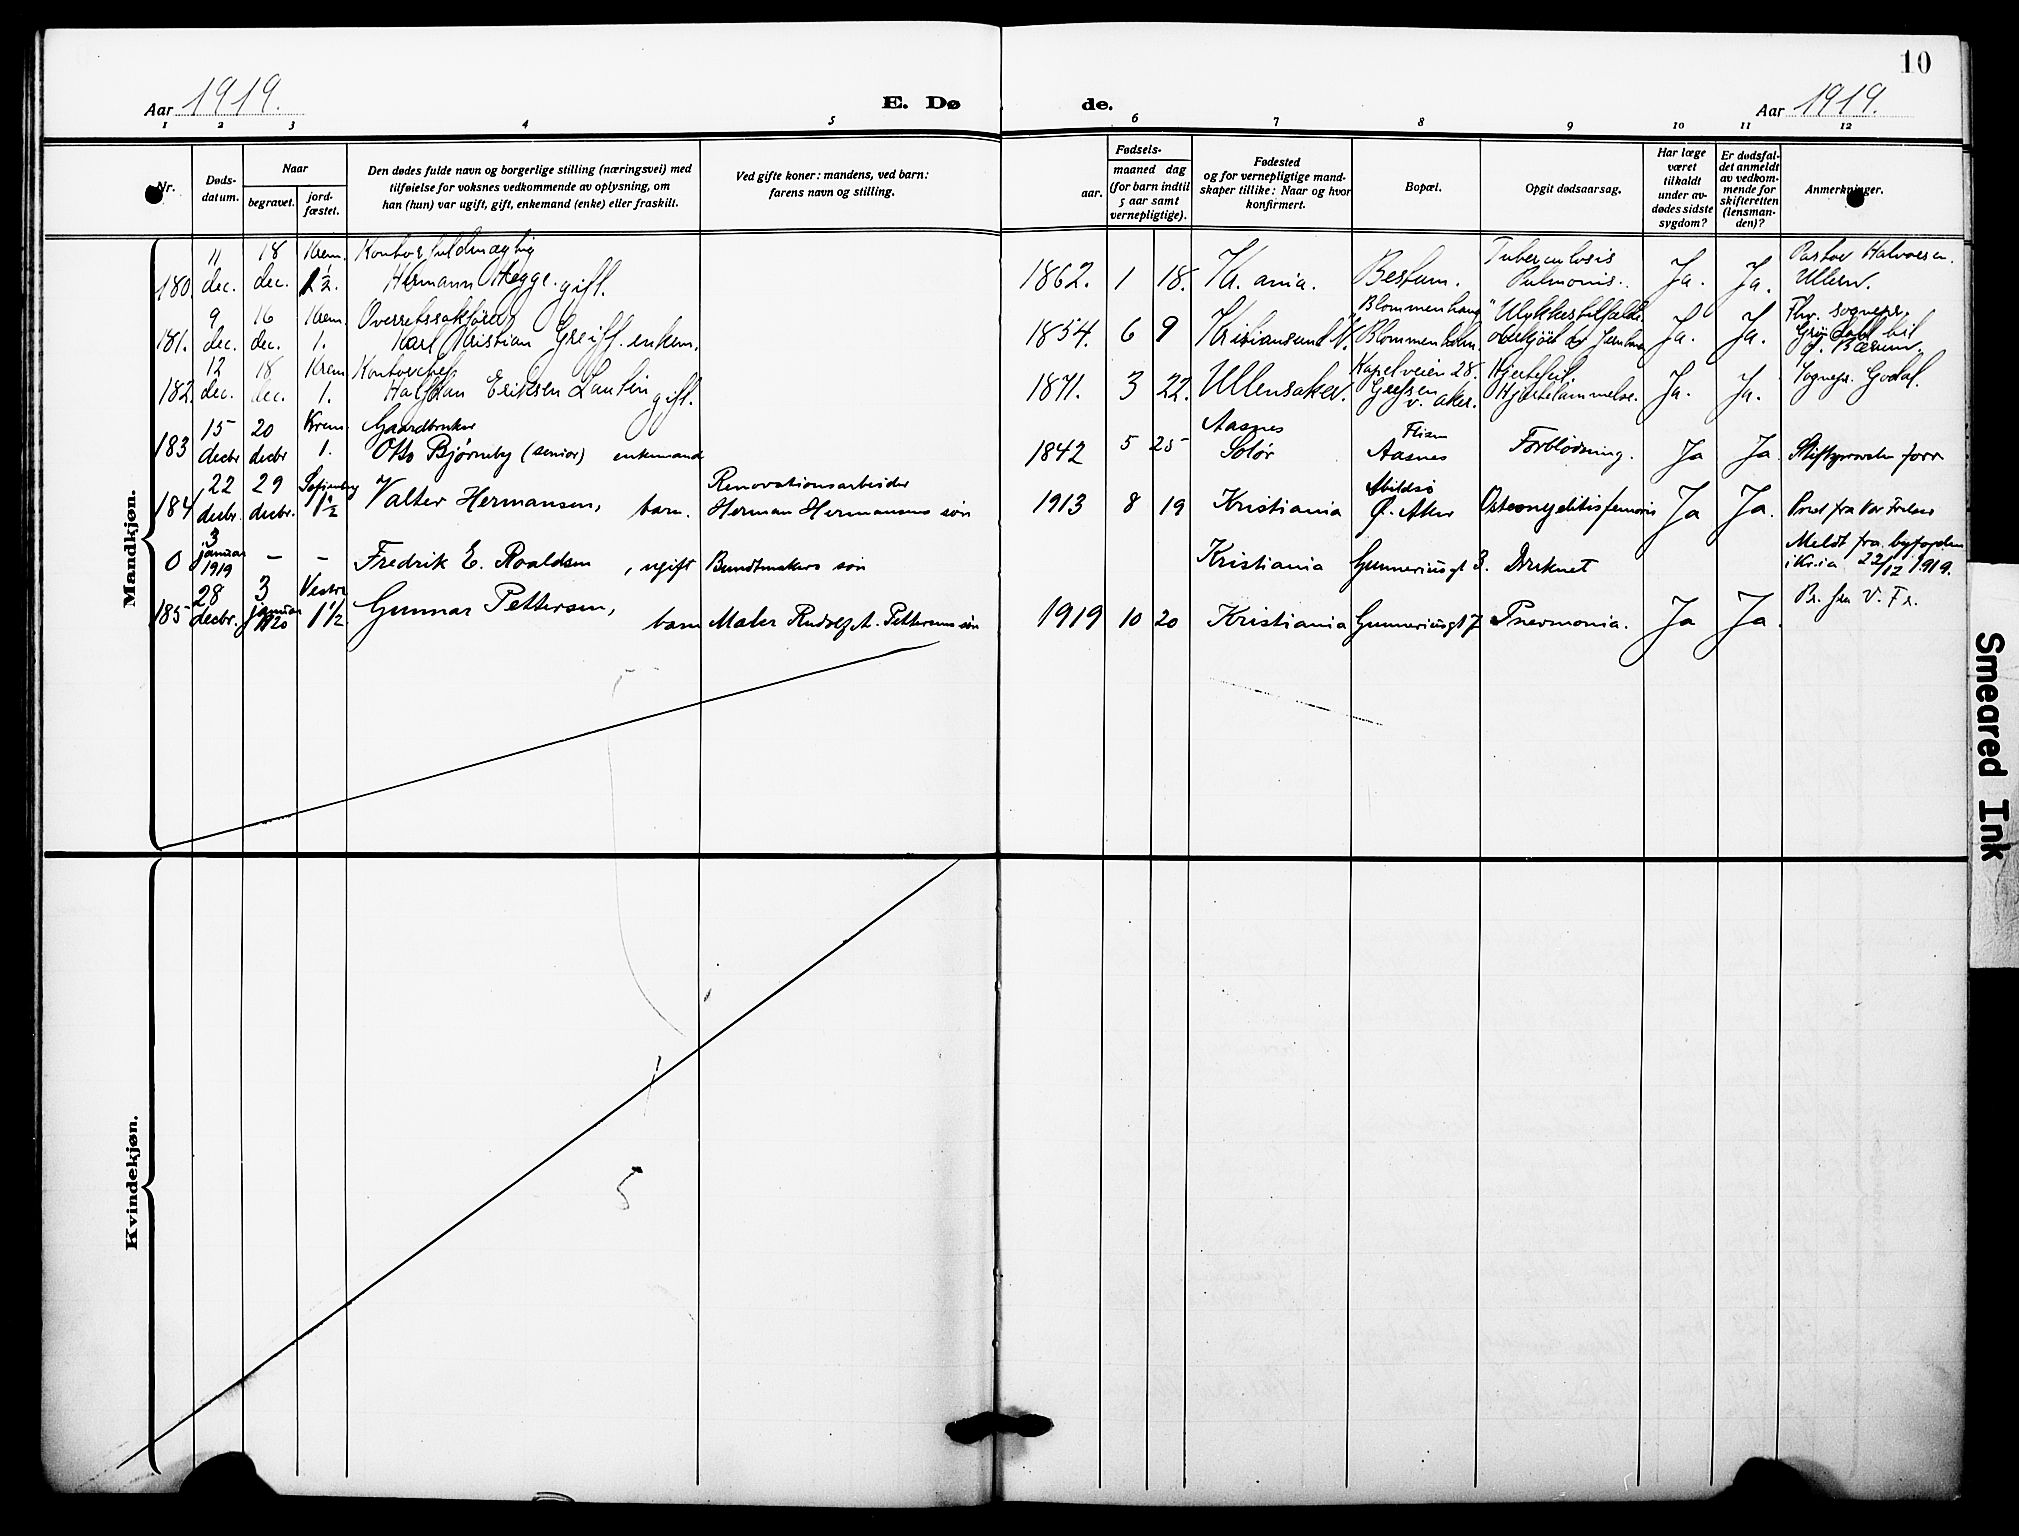 10
Aar 1919.
E. Dø
de.
Aar 1919.
1 2 3 4 5 6 7 8 9 10 11 12
Nr.
Døds-
datum.
Naar
begravet.
jord-
fæstet.
Den dødes fulde navn og borgerlige stilling (næringsvei) med
tilføielse for voksnes vedkommende av oplysning, om
han (hun) var ugift, gift, enkemand (enke) eller fraskilt.
Ved gifte koner: mandens, ved barn:
farens navn og stilling.
Fødsels-
aar.
maaned dag
(for barn indtil
5 aar samt
vernepligtige).
Fødested
og for vernepligtige mand-
skaper tillike: Naar og hvor
konfirmert.
Bopæl.
Opgit dødsaarsag.
Har læge
været
tilkaldt
under av-
dødes sidste
sygdom?
Er dødsfal-
det anmeldt
av vedkom-
mende for
skifteretten
(lensman-
den)?
Anmerkninger.
Mandkjøn.
11 18 Krem. Kontorfuldmægtig Tuberculosis Pastor Halvorsen.
180. dec. dec. 1½. Hermann Hegge. gift. 1862. 1 18. Kr.ania. Bestum. Pulmonis. Ja. Ja. Ullern.
9 16 Krem. Overretssakfører "Blommenhaug" Ulykkestilfælde Fhv. sognepr.
181. dec. dec. 1. Karl Kristian Greiff. enkem. 1854. 6 9 Kristiansund N. Blommenholm. overkjørt av Ja. Ja. Grøndahl
f. Bærum.
12 18 Krem Kontorchef Kapelveien 28. Hjertefeil
182. dec. dec. 1. Halfdan Eriksen Lautin gift. 1871. 3 22. Ullensaker. Grefsen v. Aker. Hjertelammelse. Ja. Ja. Sognepr. Godal.
15 20 Krem Gaardbruker Aasnes Flisen
183 decbr decbr 1. Otto Bjørneby (senior) enkemand 1842 5 25 Solør Aasnes Forblødning. Ja Ja Stiftsprovsten forr
22 29 Sofienberg Renovationsarbeider Abildsø
184 decbr. decbr. 1½ Valter Hermansen, barn. Herman Hermansens søn 1913 8 19 Kristiania Ø. Aker Osteomyelitis femoris Ja Ja. Præst fra Vor Frelser
3 Meldt fra byfogden
0 januar 1919 – – Fredrik E. Roaldsen, ugift Bundtmakers søn Kristiania Gunneriusgt 3. Druknet i Kr.ia 22/12 1919.
28 3 Vestre Pr. fra V. Fr.
185 decbr. januar 1920 1½ Gunnar Pettersen, barn Maler Rudolf A. Pettersens søn 1919 10 20 Kristiania Gunneriusgt 7 Pneumonia. Ja Ja.
Kvindekjøn.
5
Smeared Ink